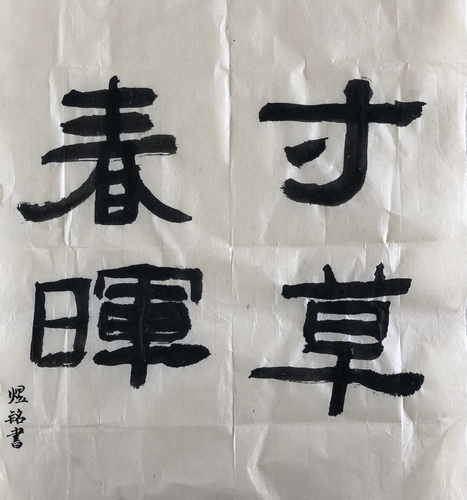 寸草
春暉
煜銘書